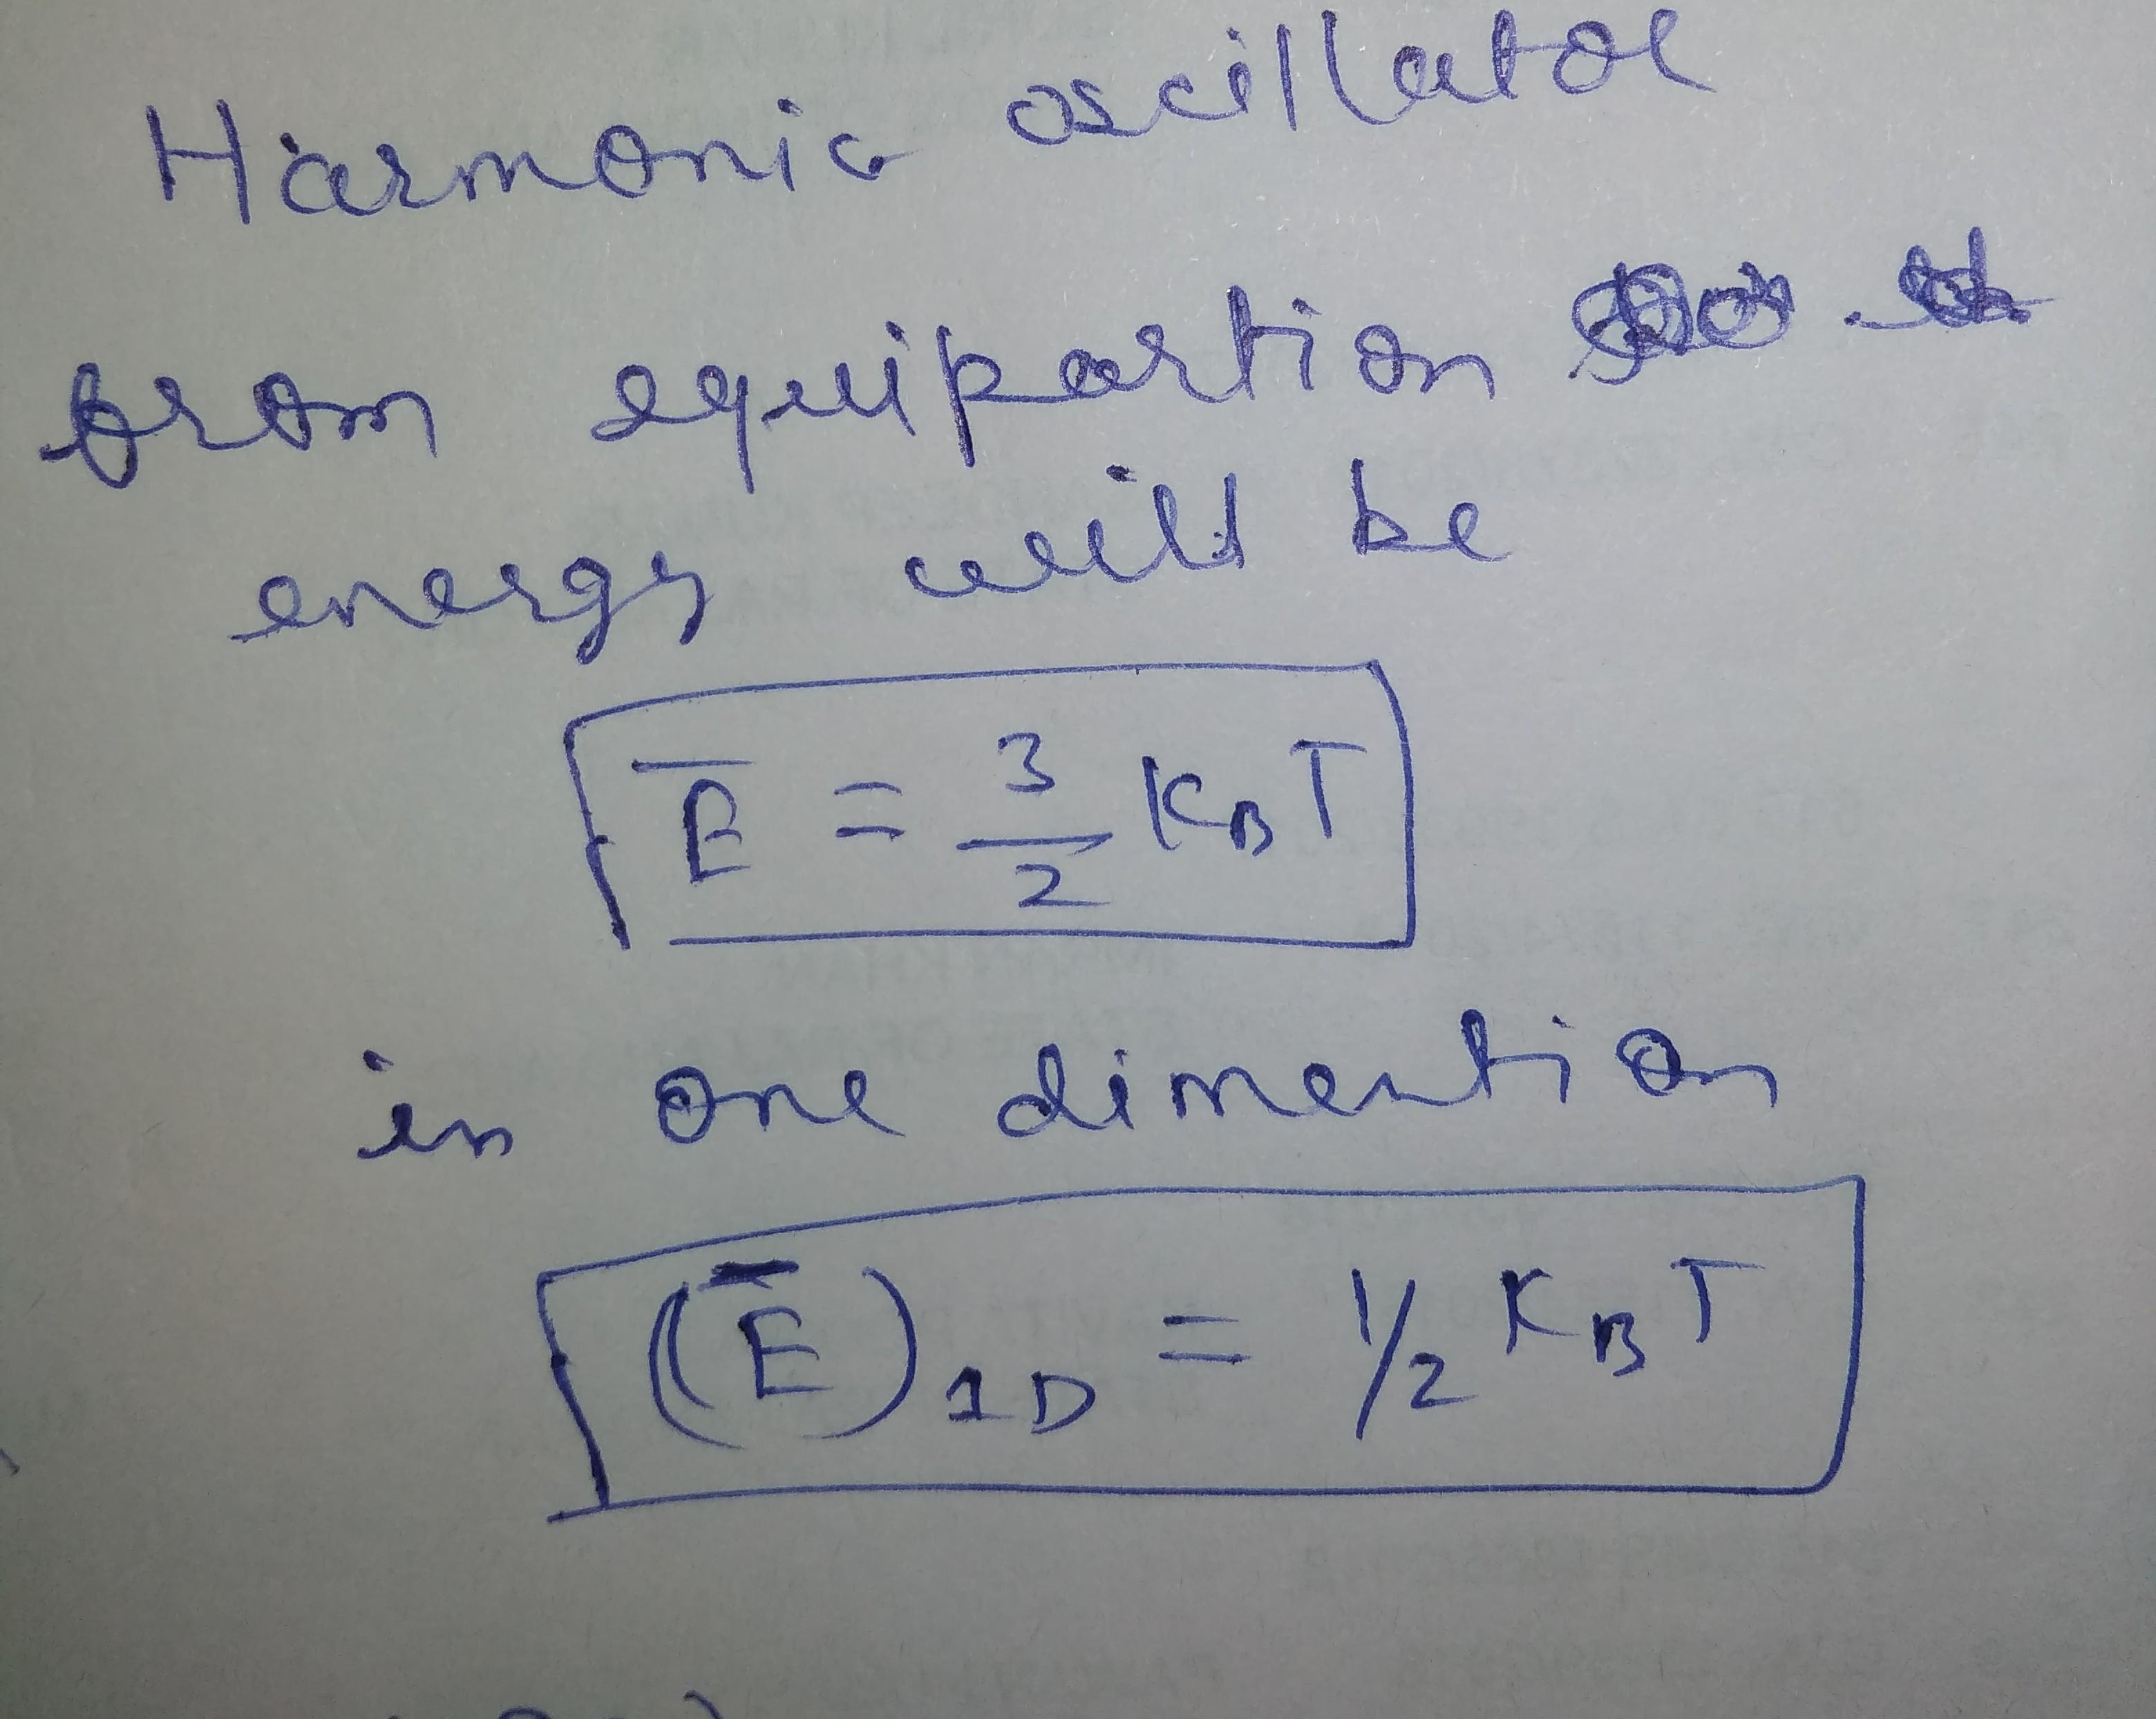 Harmonic oscillator
from equipartion
energy will be
E̅ = 3/2 KBT
in one dimention
(E̅)1D = 1/2 KBT